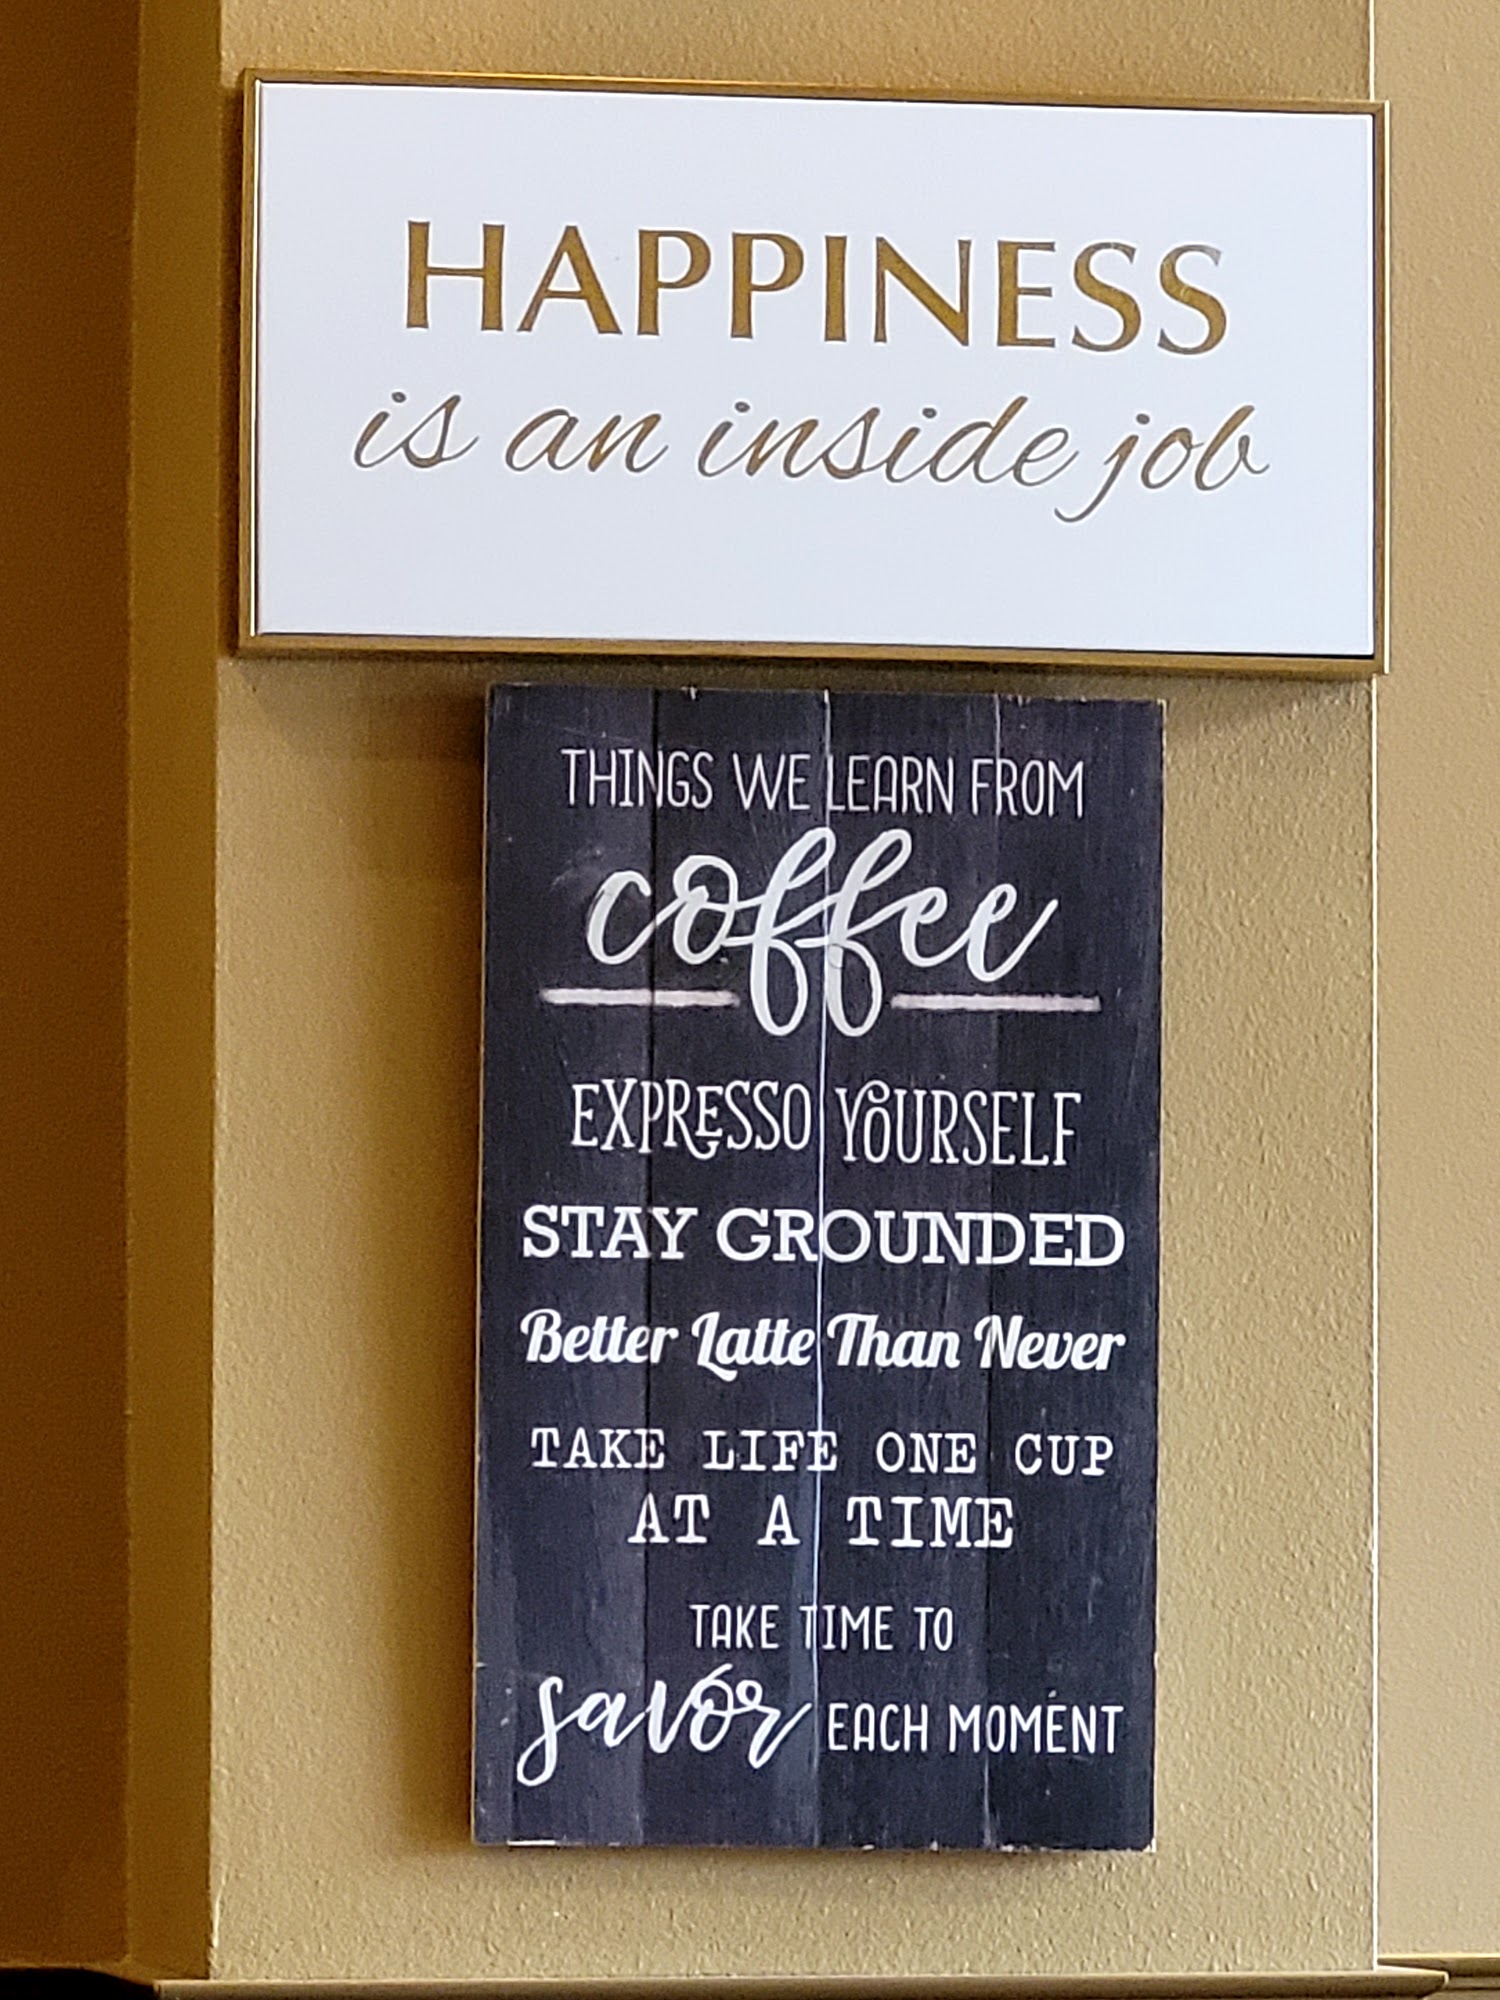 HAPPINESS
is an inside job
THINGS WE LEARN FROM
coffee
EXPRESSO YOURSELF
STAY GROUNDED
Better Latte Than Never
TAKE LIFE ONE CUP
AT A TIME
TAKE TIME TO
savor EACH MOMENT